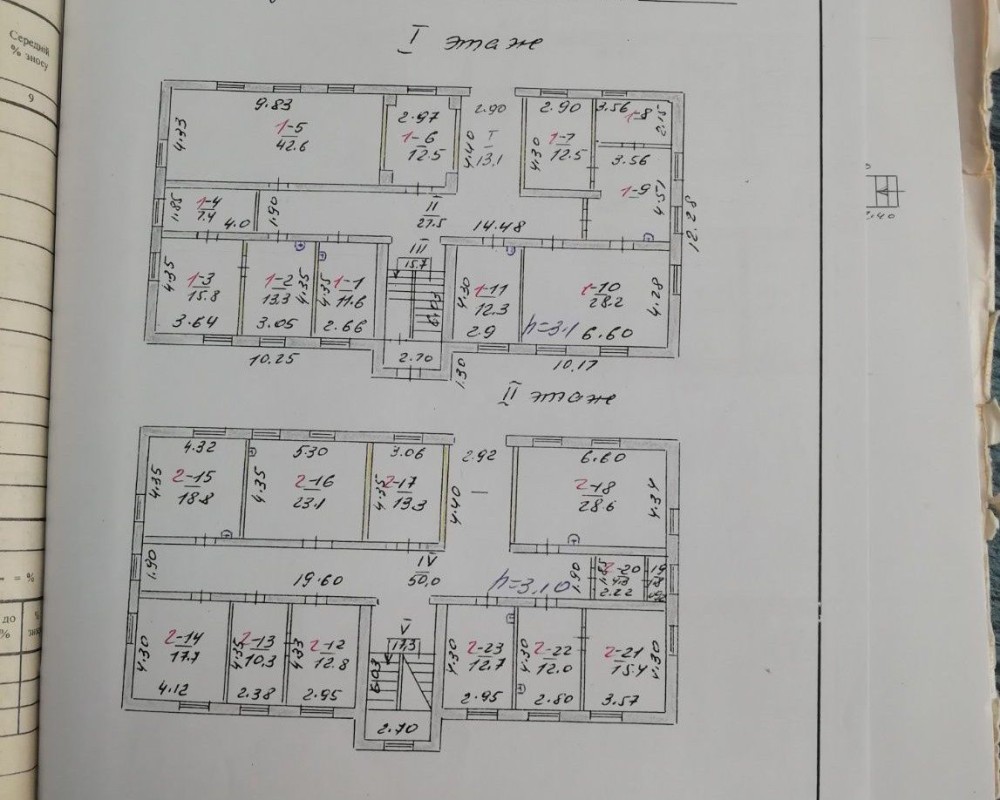 Середній
% зносу
9
I этаж
9.83
4.33
1-5
42.6
2.97
1-6
12.5
2.90
4.40
I
13.1
2.90
4.30
1-7
12.5
3.56
1-8
2.15
3.56
1-9
4.51
12.28
1.85
1-4
7.4
4.0
1.90
II
27.5
14.48
III
15.7
4.35
1-3
15.8
3.64
1-2
13.3
4.35
3.05
4.35
1-1
11.6
2.66
6.03
2.70
1.30
4.30
1-11
12.3
2.9
1-10
28.2
4.28
h=3.1
6.60
10.25
10.17
2.40
II этаж
4.32
4.35
2-15
18.8
5.30
4.35
2-16
23.1
3.06
4.35
2-17
13.3
2.92
4.40
6.60
2-18
28.6
4.34
1.90
19.60
IV
50.0
h=3.10
1.90
1.85
2-20
4.3
2.22
19
4.30
2-14
17.7
4.12
4.35
2-13
10.3
2.38
4.33
2-12
12.8
2.95
V
17.3
6.03
2.70
4.30
2-23
12.7
2.95
4.30
2-22
12.0
2.80
2-21
15.4
4.30
3.57
= %
до
%